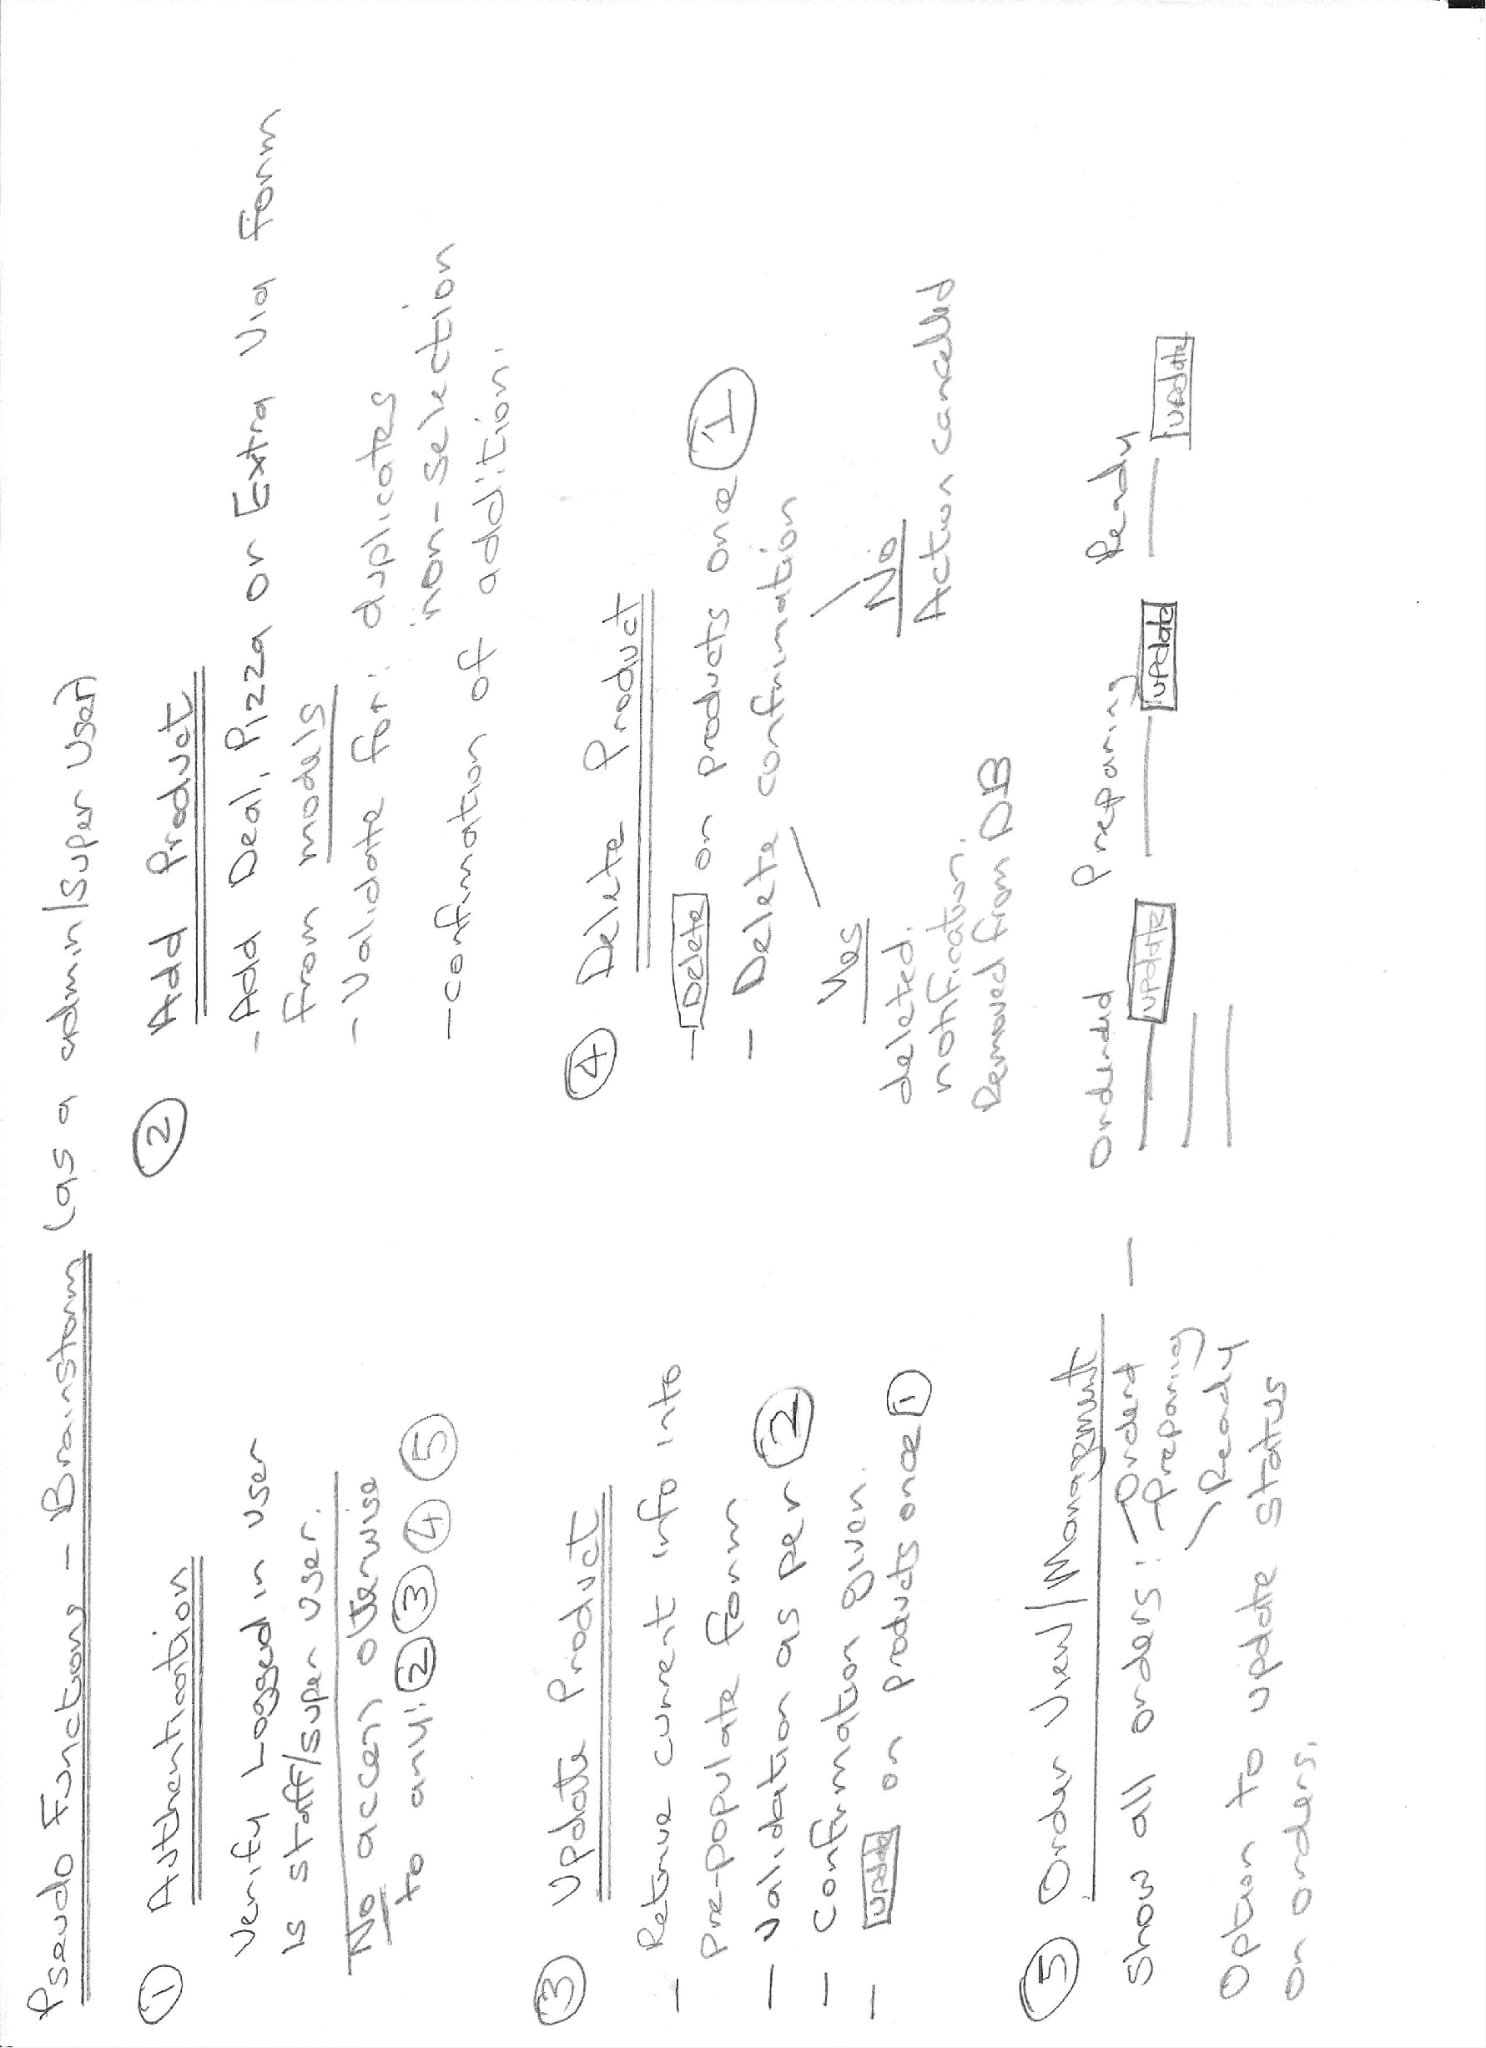 Pseudo Functions - Brainstorm (as a admin/super user)
① Authentication
Verify Logged in user
is staff/super user.
No access otherwise
to any: ② ③ ④ ⑤
② Add Product
- Add Deal, Pizza or Extra Via form
from models
- Validate for: duplicates
non-selection
- confirmation of addition.
③ Update Product
- Retrive current info into
pre-populate form
- Validation as per ②
- Confirmation given.
- Update on products once ①
④ Delete Product
- Delete on products once ①
- Delete confirmation
Yes
deleted.
notification.
Removed from DB
No
Action cancelled
⑤ Order View/Management
Show all orders: - Orderd
- Preparing
Ready
Option to update status
on orders.
- Orderded Preparing Ready
update update update